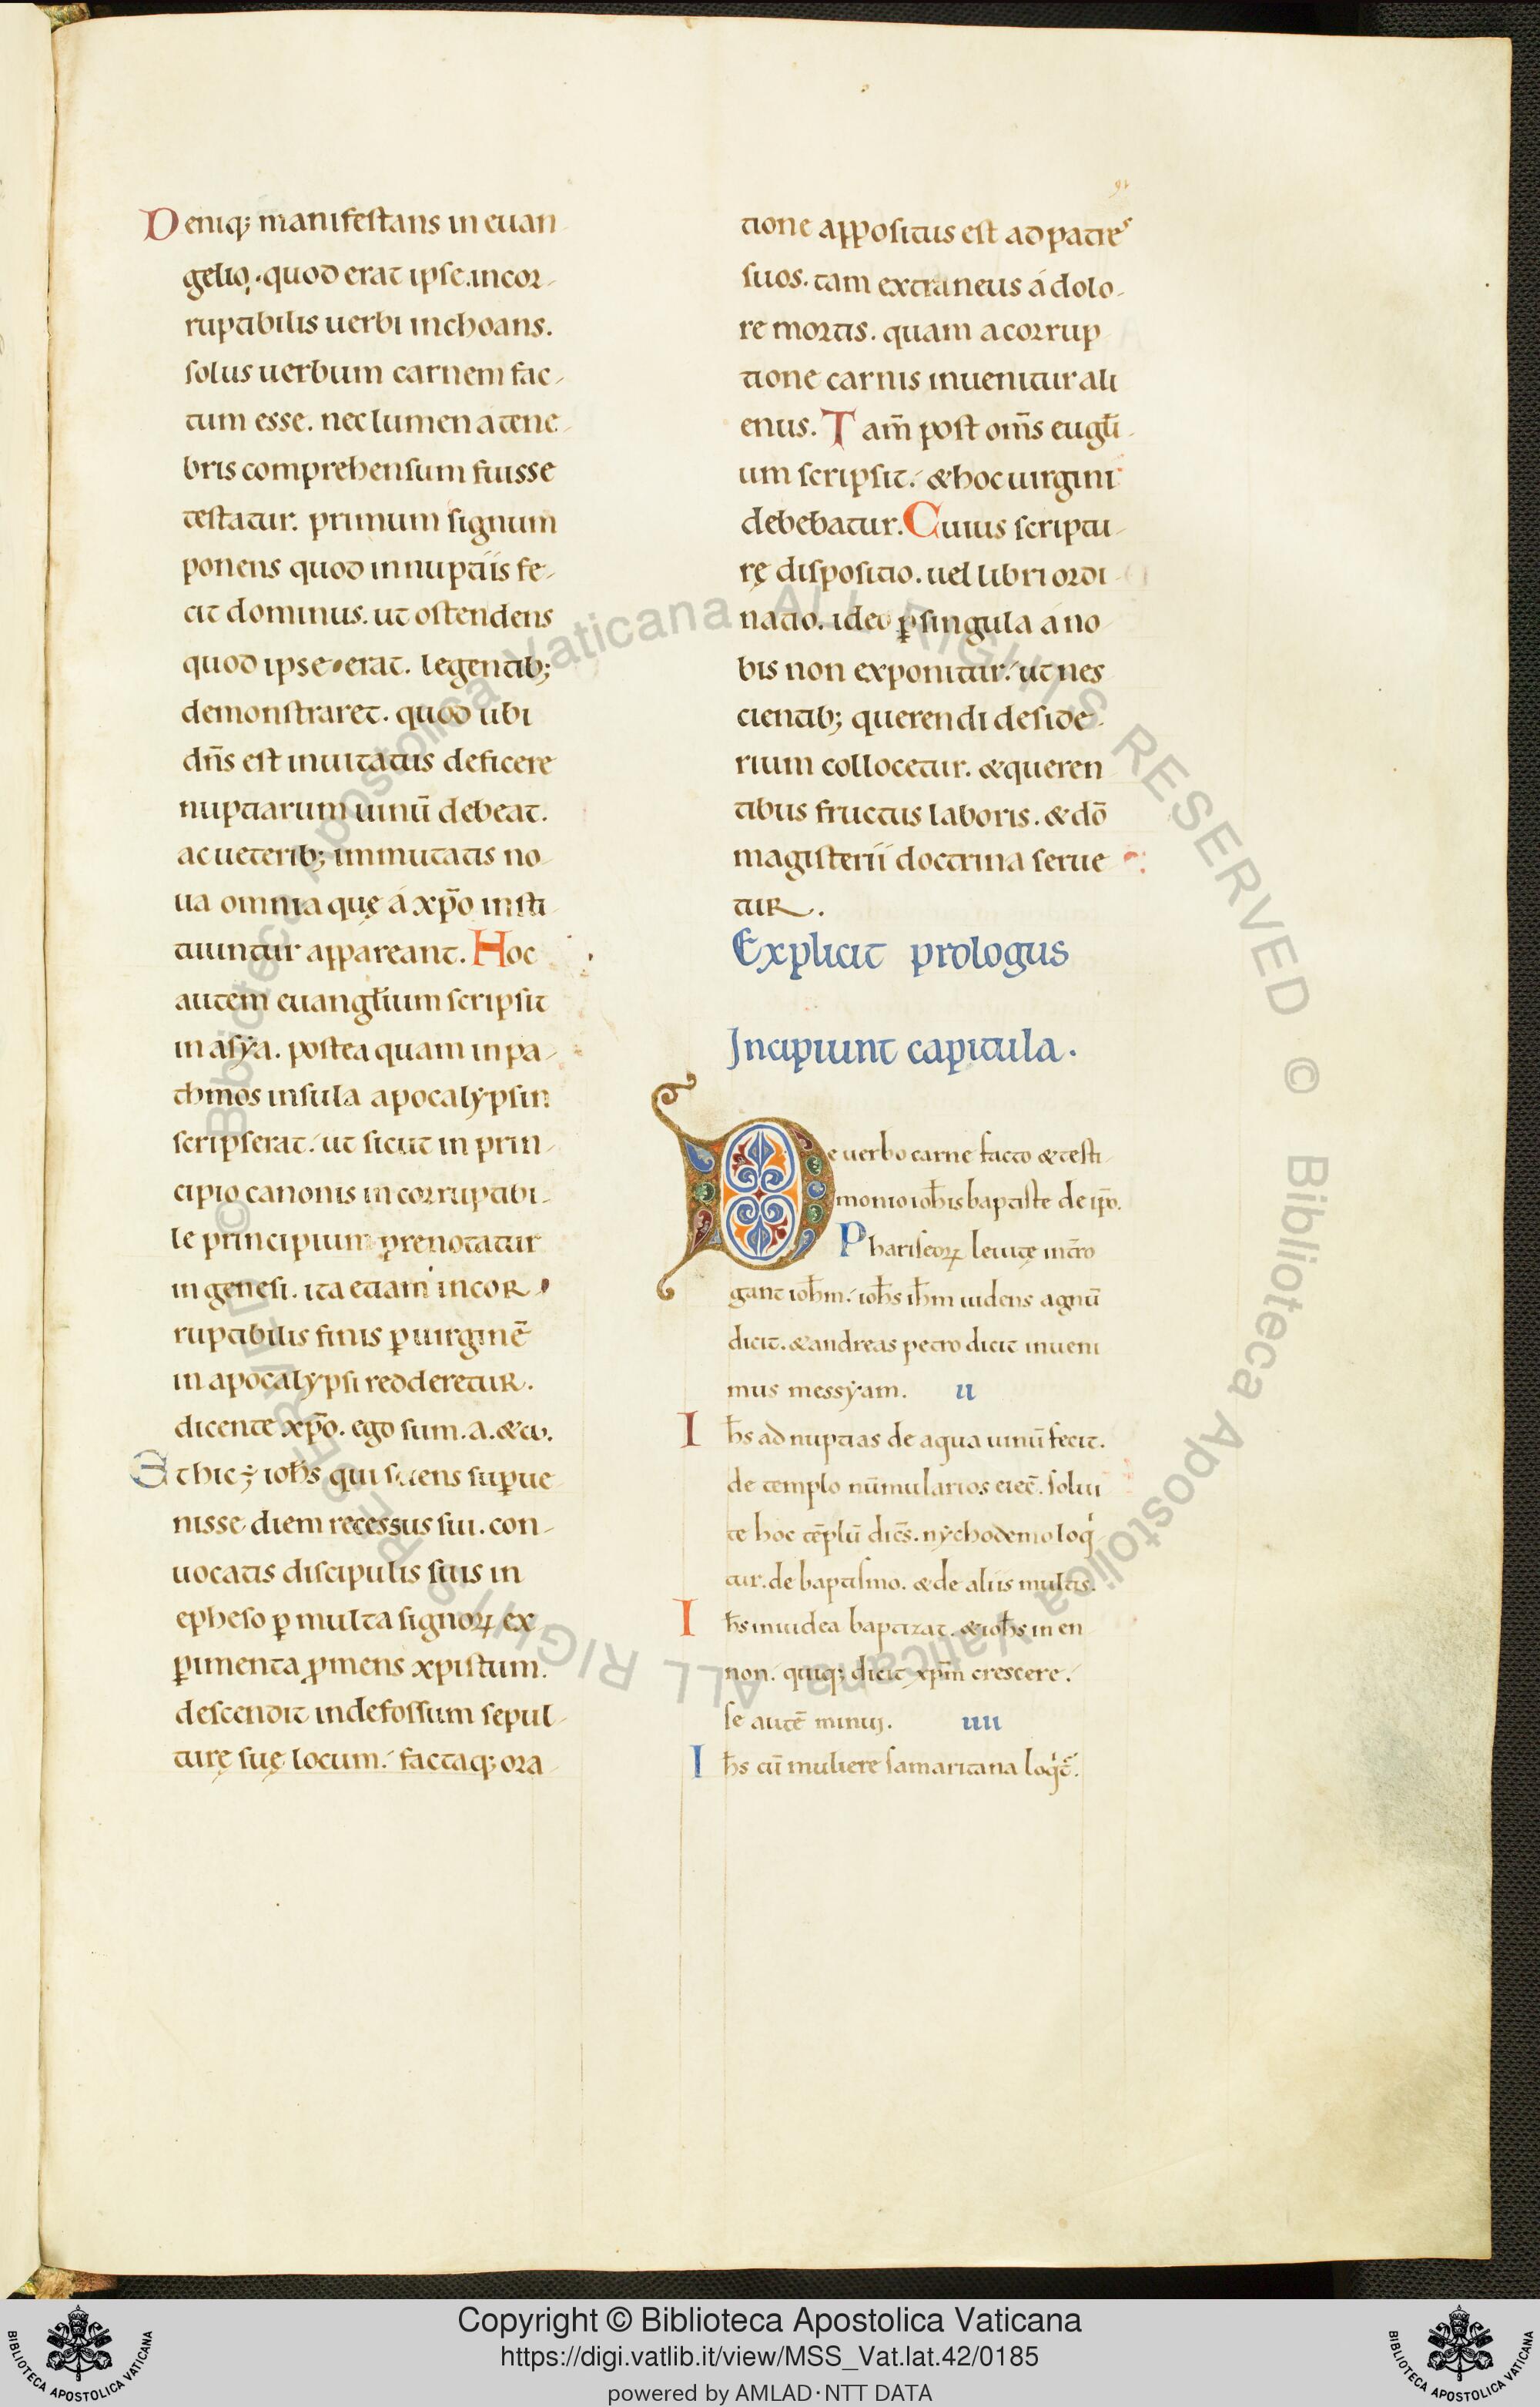 Deniq; manifestans in euan
gelio. quod erat ipse. incor-
ruptibilis uerbi inchoans.
solus uerbum carnem fac-
tum esse. nec lumen á tene-
bris comprehensum fuisse
testatur. primum signum
ponens quod in nuptiis fe-
cit dominus. ut ostendens
quod ipse erat. legentib;
demonstraret. quod ubi
dñs est inuitatus deficere
nuptiarum uinū debeat.
ac ueterib; immutatis no
ua omnia quę á xp̄o insti
tuuntur appareant. Hoc
autem euangłium scripsit
in asẏa. postea quam in pa-
thmos insula apocalẏpsin
scripserat. ut sicut in prin-
cipio canonis incorruptibi-
le principium prenotatur
in genesi. ita etiam incor
ruptibilis finis ꝑ uirginē
in apocalẏpsi redderetur.
dicente xp̄o. ego sum. a. & ω.
Et hic ÷ ioħs qui sciens suꝑue
nisse diem recessus sui. con-
uocatis discipulis suis in
epheso ꝑ multa signoꝝ ex
ꝑimenta ꝓmens xpistum.
descendit in defossum sepul-
turę suę locum. factaq; ora
tione appositus est ad patres
suos. tam extraneus á dolo-
re mortis. quam a corrup
tione carnis inuenitur ali
enus. Tam̄ post om̄s eugłi-
um scripsit. & hoc uirgini
debebatur. Cuius scriptu-
rę dispositio. uel libri ordi-
natio. ideo ꝑ singula á no
bis non exponitur. ut nes
cientib; querendi deside-
rium collocetur. & queren
tibus fructus laboris. & dō
magisterii doctrina serue
tur.
Explicit prologus
Incipiunt capitula.
De uerbo carne facto & testi-
monio ioħis baptiste de ip̄o.
Phariseoꝝ leuitę int̄ro
gant ioħm. ioħs iħm uidens agnū
dicit. & andreas petro dicit inueni
mus messẏam. II
Iħs ad nuptias de aqua uinū fecit.
de templo nūmularios eiec̄. solui
te hoc tēplū dic̄s. nẏchodemo loq
tur. de baptismo. & de aliis multis.
Iħs in iudea baptizat. & ioħs in en
non. quiq; dicit xp̄m crescere.
se autē minui. IIII
Iħs cū muliere samaritana loq̄t̄.
Copyright © Biblioteca Apostolica Vaticana
https://digi.vatlib.it/view/MSS_Vat.lat.42/0185
powered by AMLAD·NTT DATA
BIBLIOTECA APOSTOLICA VATICANA
BIBLIOTECA APOSTOLICA VATICANA
© Biblioteca Apostolica Vaticana ALL RIGHTS RESERVED © Biblioteca Apostolica Vaticana ALL RIGHTS RESERVED